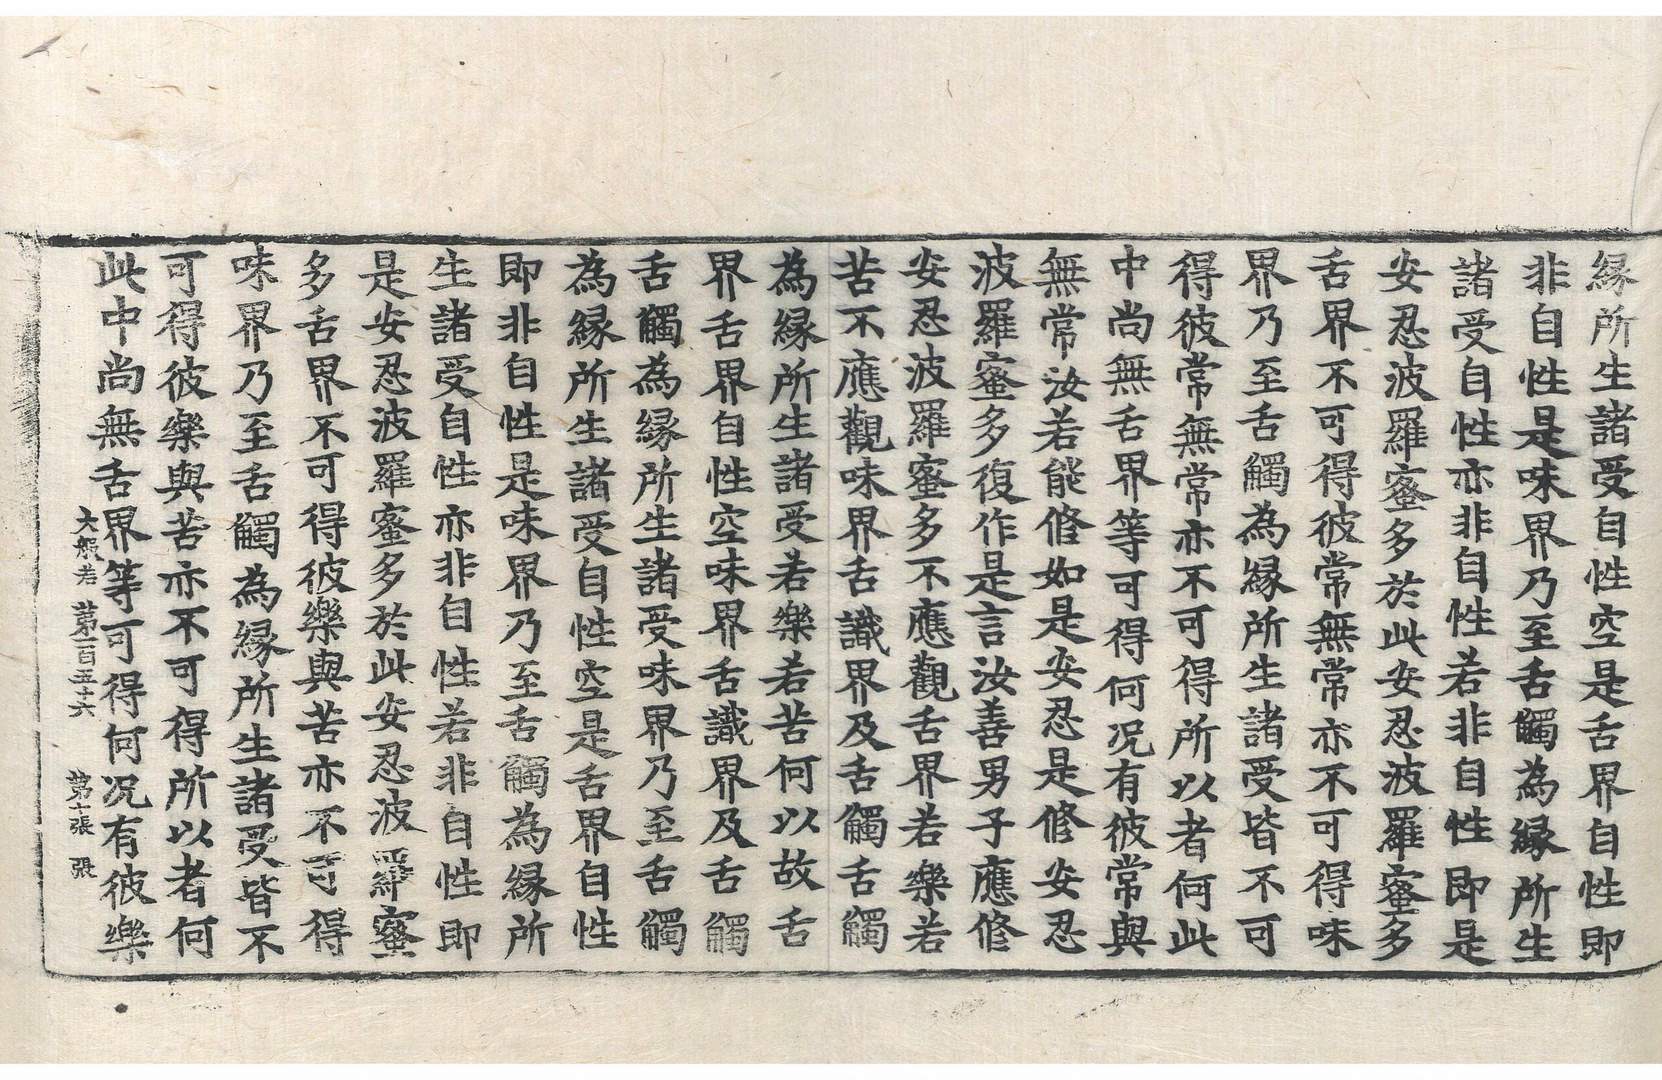 縁所生諸受自性空是舌界自性即
非自性是味界乃至舌觸為縁所生
諸受自性亦非自性若非自性即是
安忍波羅蜜多於此安忍波羅蜜多
舌界不可得彼常無常亦不可得味
界乃至舌觸為縁所生諸受皆不可
得彼常無常亦不可得所以者何此
中尚無舌界等可得何况有彼常與
無常汝若能修如是安忍是修安忍
波羅蜜多復作是言汝善男子應修
安忍波羅蜜多不應觀舌界若樂若
苦不應觀味界舌識界及舌觸舌觸
為縁所生諸受若樂若苦何以故舌
界舌界自性空味界舌識界及舌觸
舌觸為縁所生諸受味界乃至舌觸
為縁所生諸受自性空是舌界自性
即非自性是味界乃至舌觸為縁所
生諸受自性亦非自性若非自性即
是安忍波羅蜜多於此安忍波羅蜜
多舌界不可得彼樂與苦亦不可得
味界乃至舌觸為縁所生諸受皆不
可得彼樂與苦亦不可得所以者何
此中尚無舌界等可得何况有彼樂
大般若 第一百五十六 第十張 張